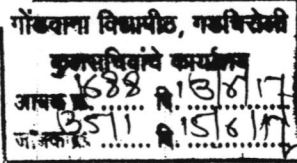 गोंडवाना विद्यापीठ, गडचिरोली
कुलसचिवांचे कार्यालय
आवक क्र. 1688 दि. 13/6/17
जावक क्र. 1351 दि. 15/6/17